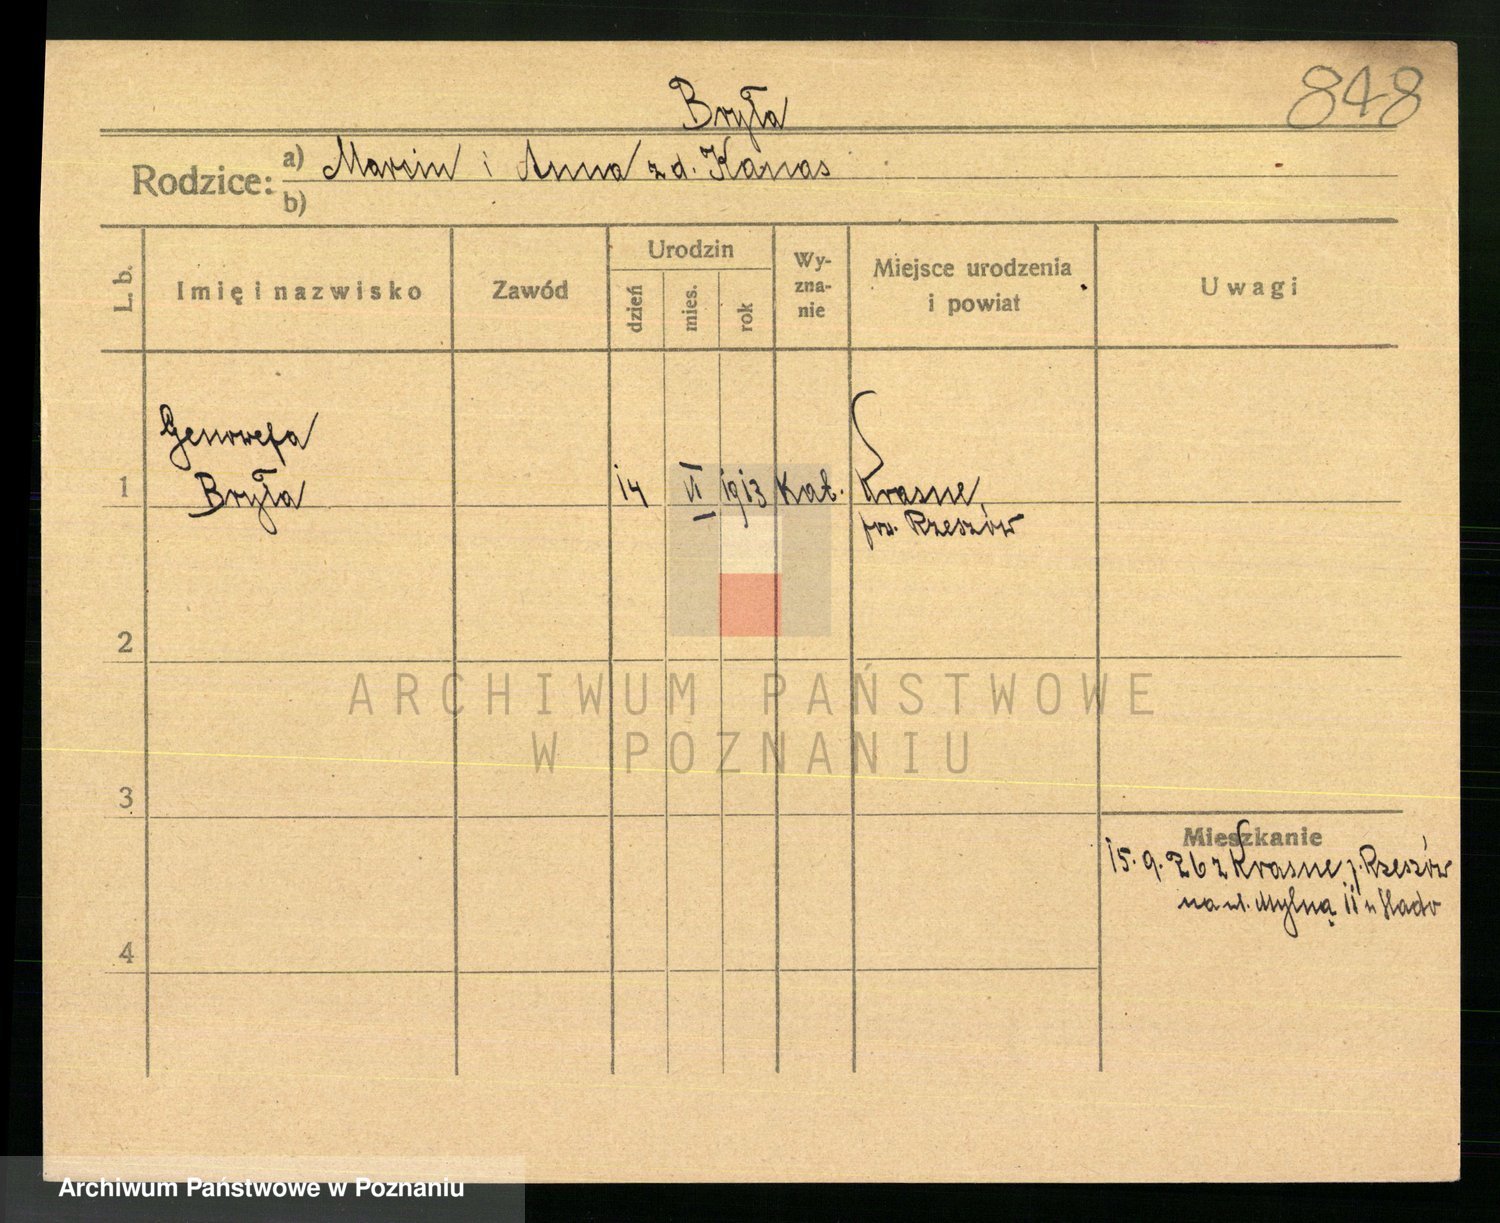 848
Bryła
Rodzice: a) Marcin i Anna z d. Kanas
b)
L. b. Imię i nazwisko Zawód Urodzin dzień mies. rok Wy-zna-nie Miejsce urodzenia i powiat Uwagi
Genowefa
1 Bryła 14 VI 1913 Kat. Krasne,
pow. Rzeszów
2
ARCHIWUM PAŃSTWOWE
W POZNANIU
3
Mieszkanie
15. 9. 26 z Krasne p. Rzeszów
na ul. Mylną 11 u
4
Archiwum Państwowe w Poznaniu